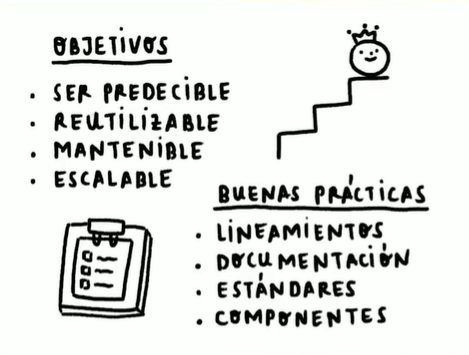 OBJETIVOS
• SER PREDECIBLE
• REUTILIZABLE
• MANTENIBLE
• ESCALABLE
BUENAS PRÁCTICAS
• LINEAMIENTOS
• DOCUMENTACIÓN
• ESTÁNDARES
• COMPONENTES